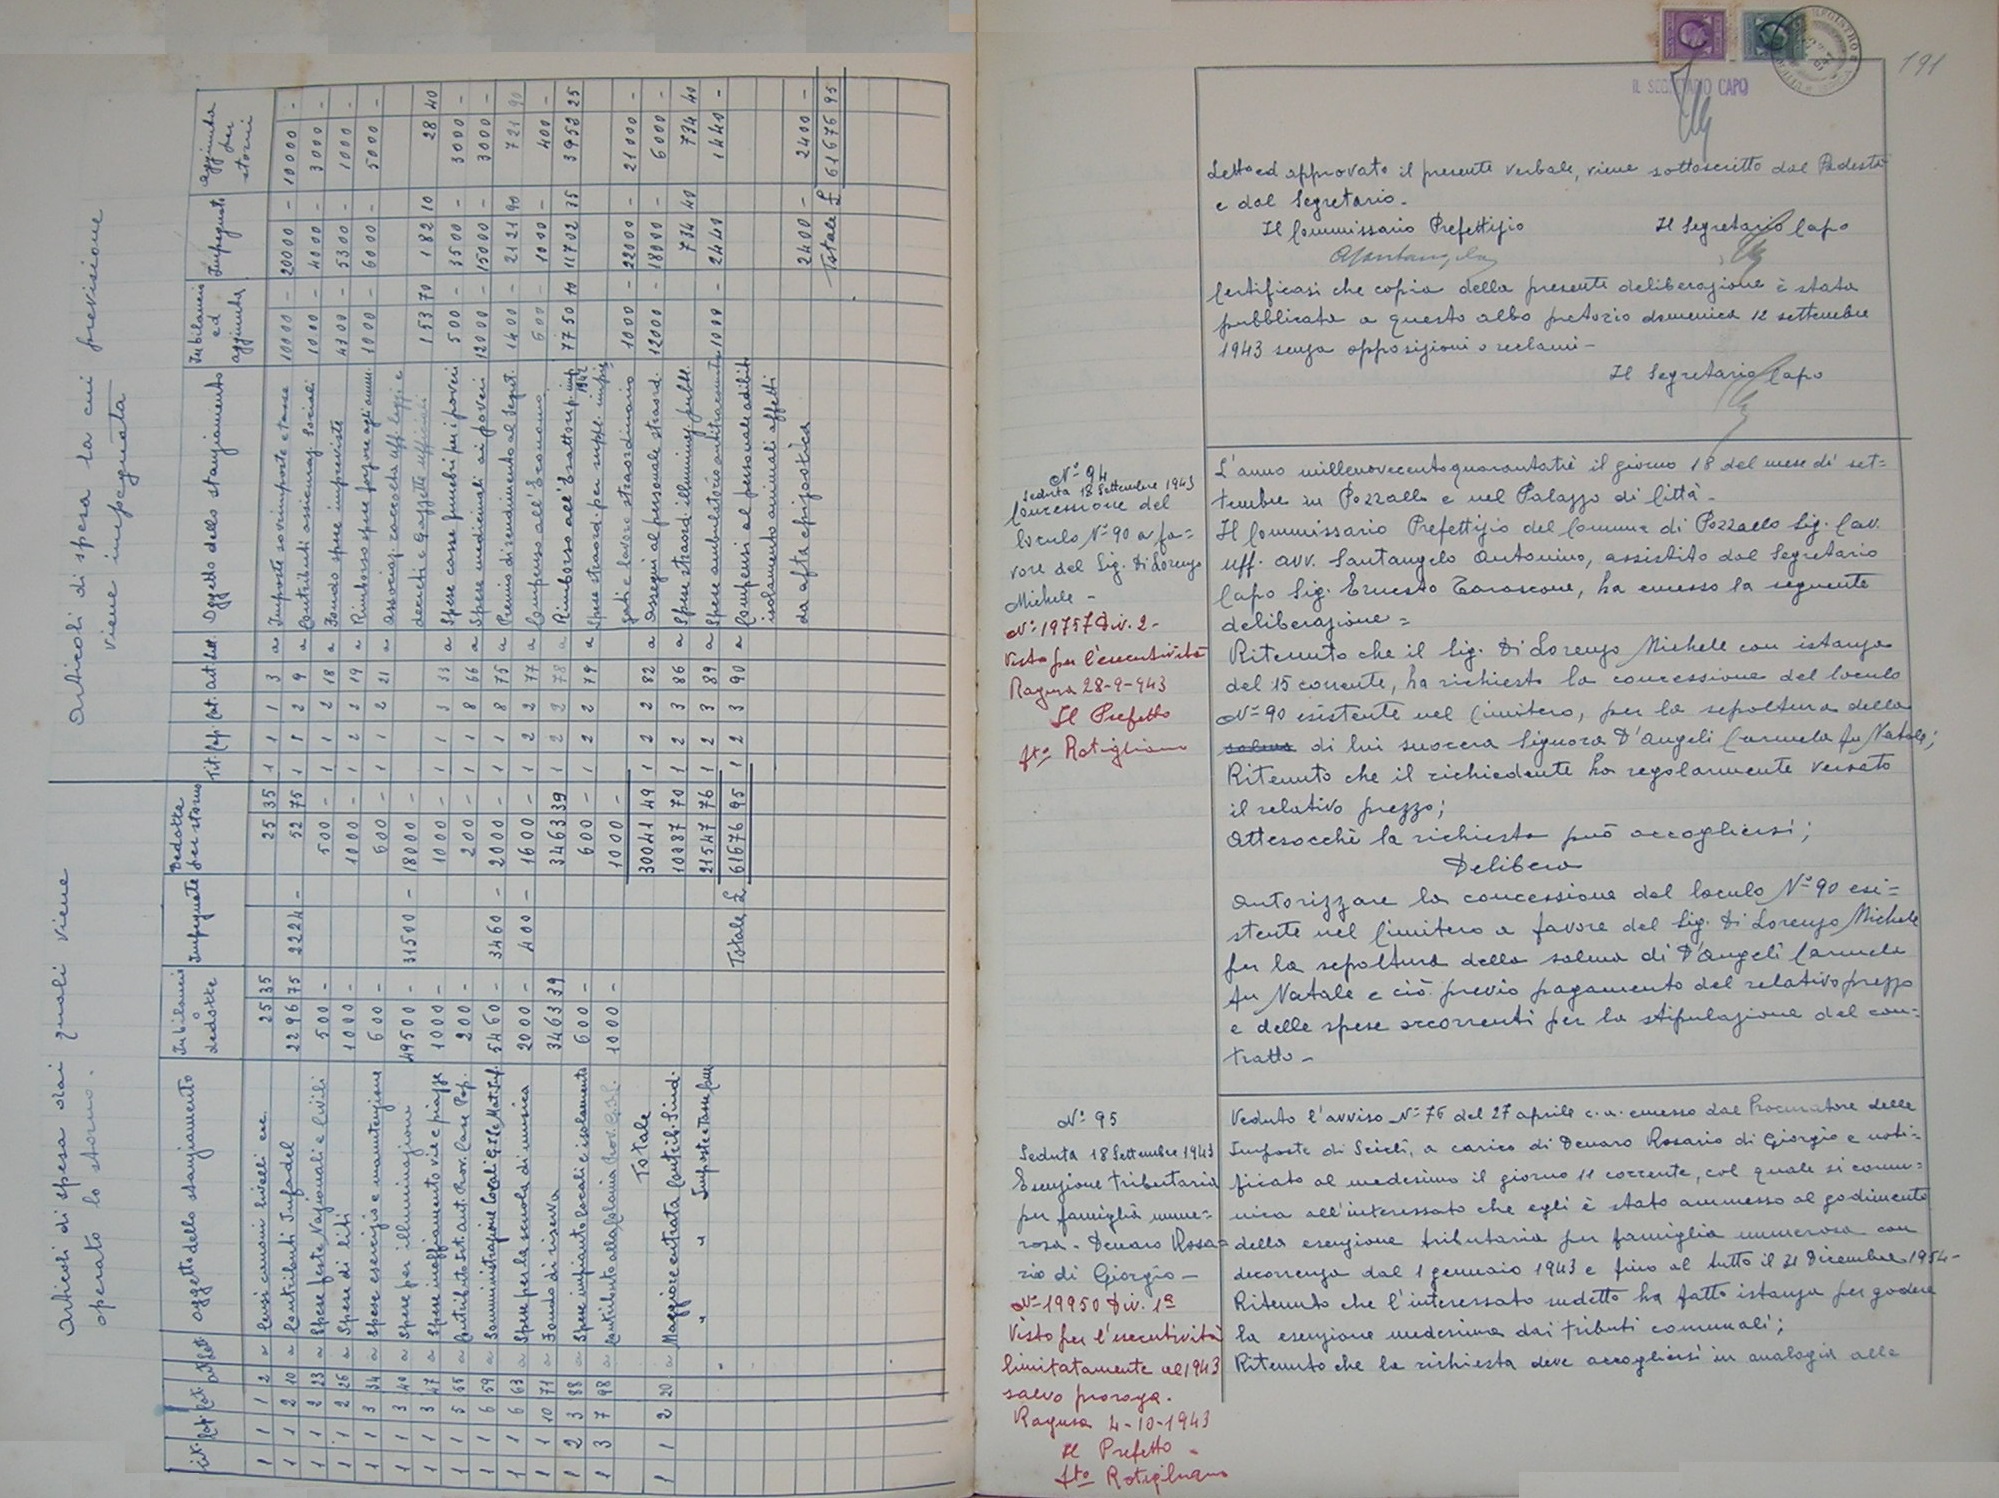 Articoli di spesa dai quali viene
operato lo storno.
Tit. Cap. Cat. Art. Lett. Oggetto dello stanziamento In bilancio o dedotte Impegnate Dedotte per storno
1 1 1 2 a Censi canoni livelli ecc. 25 35 25 35
1 1 2 10 a Contributi Infadel 2296 75 2224 - 52 75
1 1 2 23 a Spese feste Nazionali e Civili 500 - 500 -
1 1 2 26 a Spese di liti 1000 - 1000 -
1 1 3 34 a Spese esercizio e manutenzione 600 - 600 -
1 1 3 40 a Spese per illuminazione 49500 - 31500 - 18000 -
1 1 3 47 a Spese innaffiamento vie e piazze 1000 - 1000 -
1 1 5 55 a Contributo Ist. aut. Prov. Case Pop. 200 - 200 -
1 1 6 59 a Somministrazione locali 5460 - 3460 - 2000 -
1 1 6 63 a Spese per la scuola di musica 2000 - 400 - 1600 -
1 1 10 71 a Fondo di riserva 3463 39 3463 39
1 2 3 88 a Spese impianto locali e isolamento 600 - 600 -
1 3 7 98 a Contributo alla Colonia 1000 - 1000 -
Totale 30041 49
1 1 2 20 a Maggiore entrata Contrib. Sind. 10087 70
" " Imposte e tasse 21547 76
Totale £ 61676 95
Articoli di spesa la cui previsione
viene impinguata
Tit. Cap. Cat. Art. Lett. Oggetto dello stanziamento In bilancio ed aggiunta Impinguate Aggiunta per storni
1 1 1 3 a Imposte sovrimposte e tasse 10000 - 20000 - 10000 -
1 1 2 9 a Contributi assicuraz. Sociali 1000 - 4000 - 3000 -
1 1 2 18 a Fondo spese impreviste 4300 - 5300 - 1000 -
1 2 2 19 a Rimborso spese forzose agli amm. 1000 - 6000 - 5000 -
1 1 2 21 a Associaz. raccolta uff. leggi e
decreti e gazzette ufficiali 153 70 182 10 28 40
1 1 3 33 a Spese casse funebri per i poveri 500 - 3500 - 3000 -
1 1 8 66 a Spese medicinali ai poveri 12000 - 15000 - 3000 -
1 1 8 75 a Premio di rendimento al Segret. 1400 - 2121 90 721 90
1 2 2 77 a Compenso all'Economo 600 - 1000 - 400 -
1 2 2 78 a Rimborso all'Esattore imp. 1942 7750 10 11702 35 3952 25
1 2 2 79 a Spese straord. per suppl. impie
gati e lavoro straordinario 1000 - 22000 - 21000 -
1 2 2 82 a Assegni al personale straord. 12000 - 18000 - 6000 -
1 2 3 86 a Spese straord. illuminaz. pubbl. 734 40 734 40
1 2 3 89 a Spese ambulatorio antitracomatoso 1000 - 2440 - 1440 -
1 2 3 90 a Compensi al personale adibito
isolamento animali affetti
da afta epizootica 2400 - 2400 -
Totale £ 61676 95
191
IL SEGRETARIO CAPO
Letto ed approvato il presente verbale, viene sottoscritto dal Podestà
e dal Segretario.
Il Commissario Prefettizio Il Segretario Capo
ASantangelo
Certificasi che copia della presente deliberazione è stata
pubblicata a questo albo pretorio domenica 12 settembre
1943 senza opposizioni o reclami -
Il Segretario Capo
N° 94
Seduta 18 Settembre 1943
Concessione del
loculo N° 90 a fa=
vore del Sig. Di Lorenzo
Michele -
N° 19757 Div. 2 -
Visto per l'esecutività
Ragusa 28-9-943
Il Prefetto
fto Rotigliano
L'anno millenovecentoquarantatrè il giorno 18 del mese di set=
tembre in Pozzallo e nel Palazzo di Città -
Il Commissario Prefettizio del Comune di Pozzallo Sig. Cav.
Uff. Avv. Santangelo Antonino, assistito dal Segretario
Capo Sig. Ernesto Tarascone, ha emesso la seguente
deliberazione =
Ritenuto che il Sig. Di Lorenzo Michele con istanza
del 15 corrente, ha richiesto la concessione del loculo
N° 90 esistente nel Cimitero, per la sepoltura della
salma di lui suocera Signora D'Angeli Carmela fu Natale;
Ritenuto che il richiedente ha regolarmente versato
il relativo prezzo;
Attesocchè la richiesta può accogliersi;
Delibera
Autorizzare la concessione del loculo N° 90 esi=
stente nel Cimitero a favore del Sig. Di Lorenzo Michele
per la sepoltura della salma di D'Angeli Carmela
fu Natale e ciò previo pagamento del relativo prezzo
e delle spese occorrenti per la stipulazione del con=
tratto -
N° 95
Seduta 18 Settembre 1943
Esenzione tributaria
per famiglia nume=
rosa - Denaro Rosa=
rio di Giorgio -
N° 19950 Div. 1a
Visto per l'esecutività
limitatamente al 1943
salvo proroga.
Ragusa 4-10-1943
Il Prefetto
fto Rotigliano
Veduto l'avviso N° 76 del 27 aprile c.a. emesso dal Procuratore delle
Imposte di Scicli, a carico di Denaro Rosario di Giorgio e noti=
ficato al medesimo il giorno 11 corrente, col quale si comu=
nica all'interessato che egli è stato ammesso al godimento
della esenzione tributaria per famiglia numerosa con
decorrenza dal 1 gennaio 1943 e fino al tutto il 31 Dicembre 1954 -
Ritenuto che l'interessato sudetto ha fatto istanza per godere
la esenzione medesima dai tributi comunali;
Ritenuto che la richiesta deve accogliersi in analogia alle